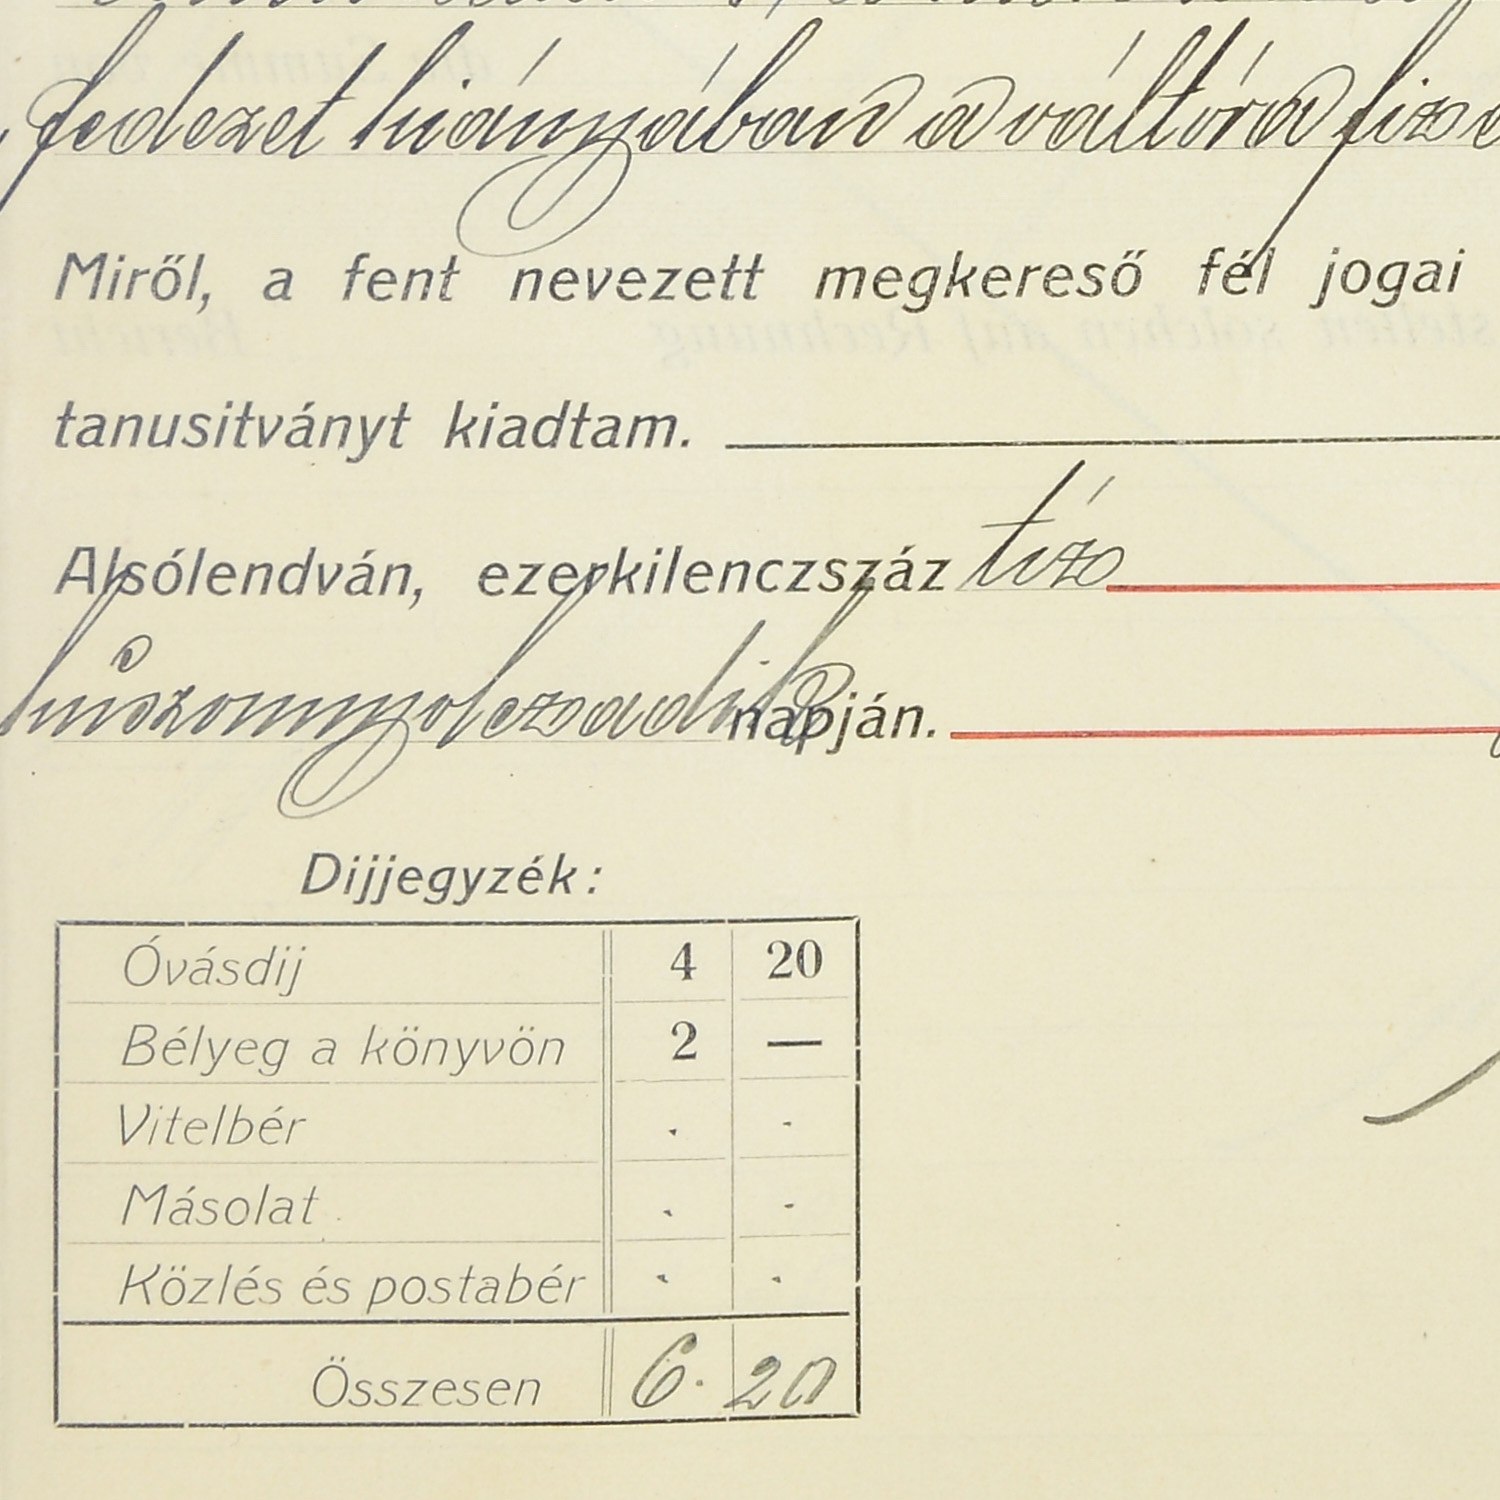 fedezet hiányában a váltóra
Miről, a fent nevezett megkereső fél jogai
tanusitványt kiadtam.
Alsólendván, ezerkilenczszáz tiz
húszonnyolczadik napján.
Dijjegyzék:
Óvásdij 4 20
Bélyeg a könyvön 2 —
Vitelbér . .
Másolat . .
Közlés és postabér . .
Összesen 6. 20